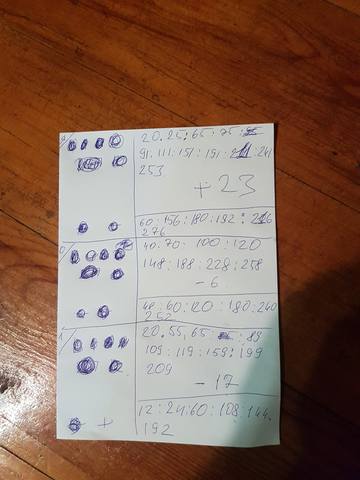 20.25:65.75:
91.111:151:191.211:241
253
+23
60:156:180:192:216
276
40:70: 100:120
148:188:228:258
-6
48:60:120:180:240
252
20.55,65 89
109:119:159:199
209
-17
12:24:60:108:144.
192
+